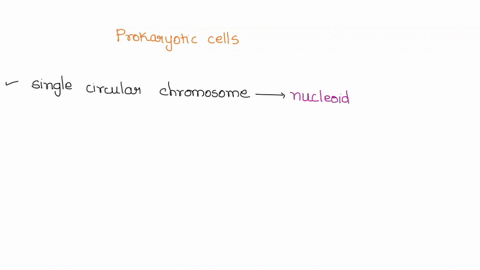 Prokaryotic cells
✓ single circular chromosome → nucleoid